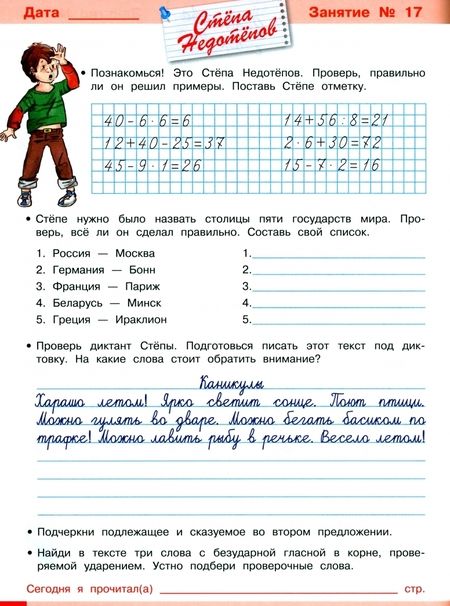 Дата
Стёпа
Недотёпов
Занятие № 17
• Познакомься! Это Стёпа Недотёпов. Проверь, правильно
ли он решил примеры. Поставь Стёпе отметку.
40 - 6 · 6 = 6
14 + 56 : 8 = 21
12 + 40 - 25 = 37
2 · 6 + 30 = 72
45 - 9 · 1 = 26
15 - 7 · 2 = 16
• Стёпе нужно было назвать столицы пяти государств мира. Про-
верь, всё ли он сделал правильно. Составь свой список.
1. Россия — Москва
1.
2. Германия — Бонн
2.
3. Франция — Париж
3.
4. Беларусь — Минск
4.
5. Греция — Ираклион
5.
• Проверь диктант Стёпы. Подготовься писать этот текст под дик-
товку. На какие слова стоит обратить внимание?
Каникулы
Харашо летом! Ярко светит сонце. Поют птици.
Можно гулять во дваре. Можно бегать басиком по
трафке! Можно лавить рыбу в речьке. Весело летом!
• Подчеркни подлежащее и сказуемое во втором предложении.
• Найди в тексте три слова с безударной гласной в корне, прове-
ряемой ударением. Устно подбери проверочные слова.
Сегодня я прочитал(а) стр.